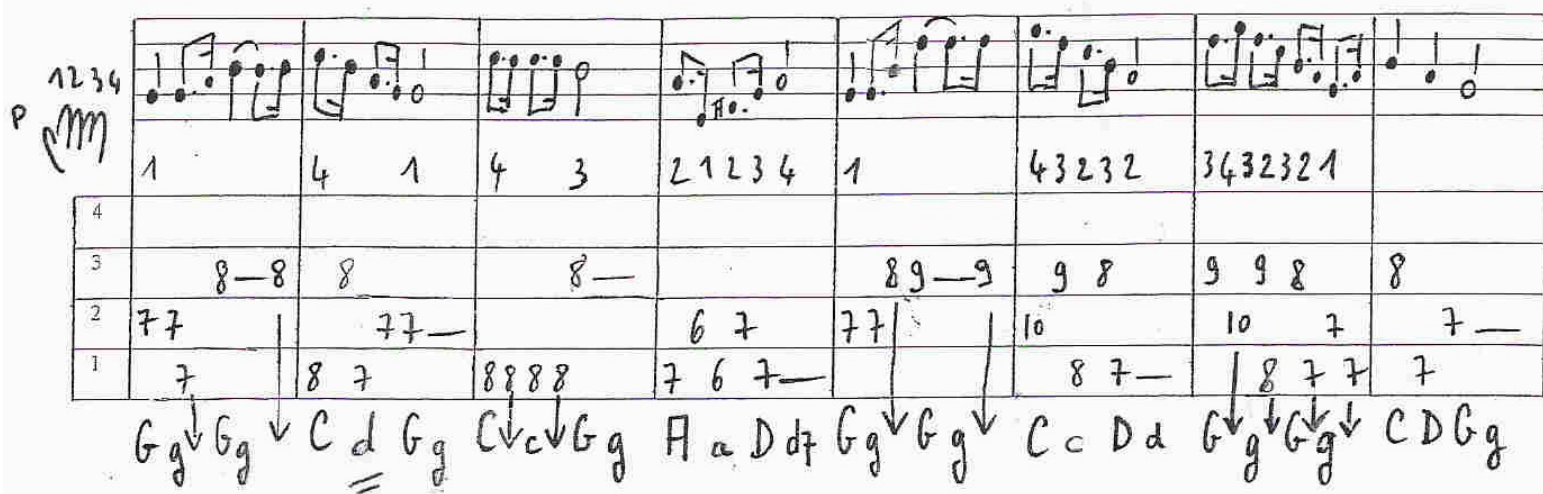 1 2 3 4
P
1 4 1 4 3 2 1 2 3 4 1 4 3 2 3 2 3 4 3 2 3 2 1
4
3 8—8 8 8— 8 9—9 9 8 9 9 8 8
2 7 7 7 7— 6 7 7 7 10 10 7 7—
1 7 8 7 8 8 8 8 7 6 7— 8 7— 8 7 7 7
G g ↓ G g ↓ C d G g C ↓ c ↓ G g A a D d7 G g ↓ G g ↓ C c D d G ↓ g ↓ G ↓ g ↓ C D G g